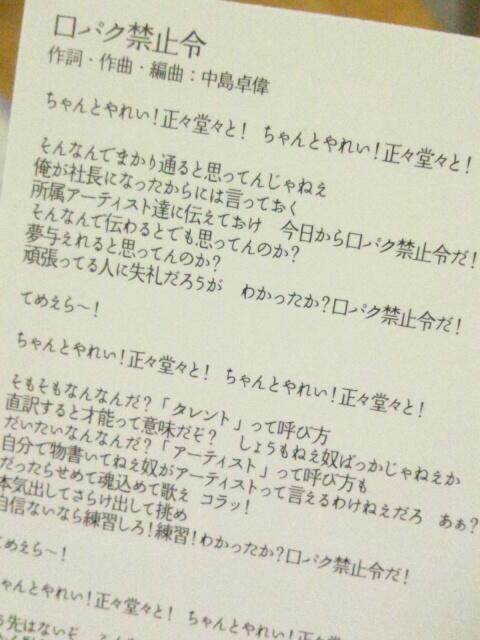 口パク禁止令
作詞・作曲・編曲：中島卓偉
ちゃんとやれい！正々堂々と！ ちゃんとやれい！正々堂々と！
そんなんでまかり通ると思ってんじゃねぇ
俺が社長になったからには言っておく
所属アーティスト達に伝えておけ 今日から口パク禁止令だ！
そんなんで伝わるとでも思ってんのか？
夢与えれると思ってんのか？
頑張ってる人に失礼だろうが わかったか？口パク禁止令だ！
てめえら～！
ちゃんとやれい！正々堂々と！ ちゃんとやれい！正々堂々と！
そもそもなんなんだ？「タレント」って呼び方
直訳すると才能って意味だぞ？ しょうもねえ奴ばっかじゃねえか
だいたいなんなんだ？「アーティスト」って呼び方も
自分で物書いてねえ奴がアーティストって言えるわけねえだろ あぁ？
だったらせめて魂込めて歌え コラッ！
本気出してさらけ出して挑め
自信ないなら練習しろ！練習！わかったか？口パク禁止令だ！
てめえら～！
ちゃんとやれい！正々堂々と！ ちゃんとやれい！正々堂々と！
先はないぞ